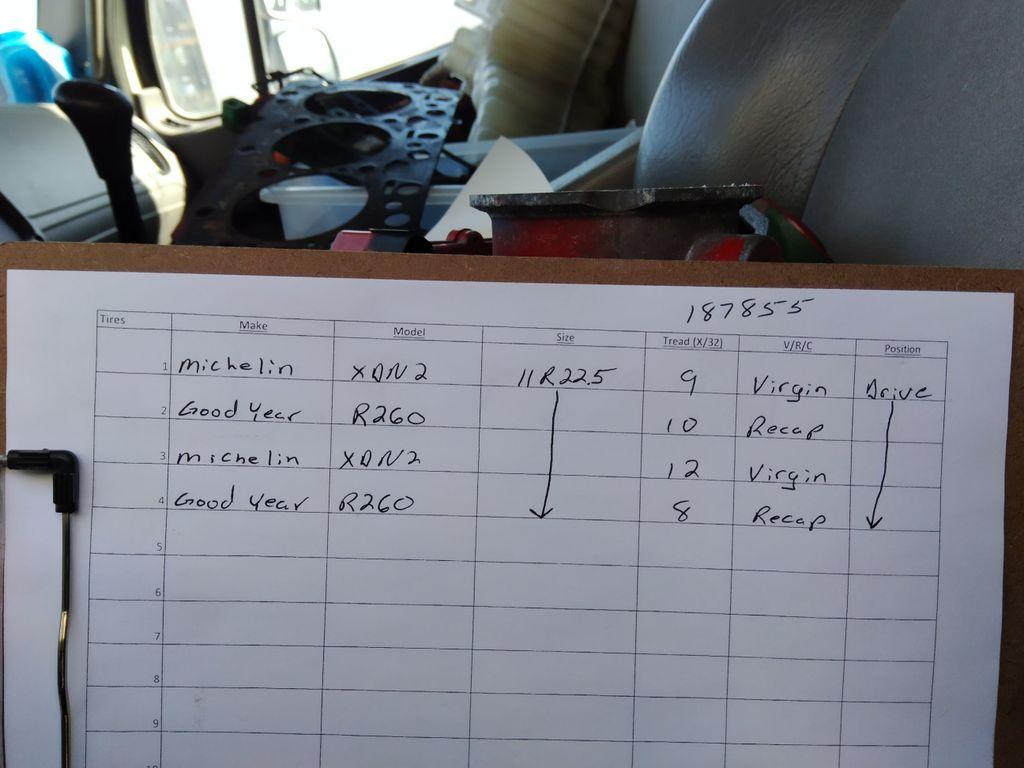 187855
Tires Make Model Size Tread (X/32) V/R/C Position
1 Michelin XDN2 11R22.5 9 Virgin Drive
2 Good Year R260 10 Recap
3 Michelin XDN2 12 Virgin
4 Good Year R260 8 Recap
5
6
7
8
9